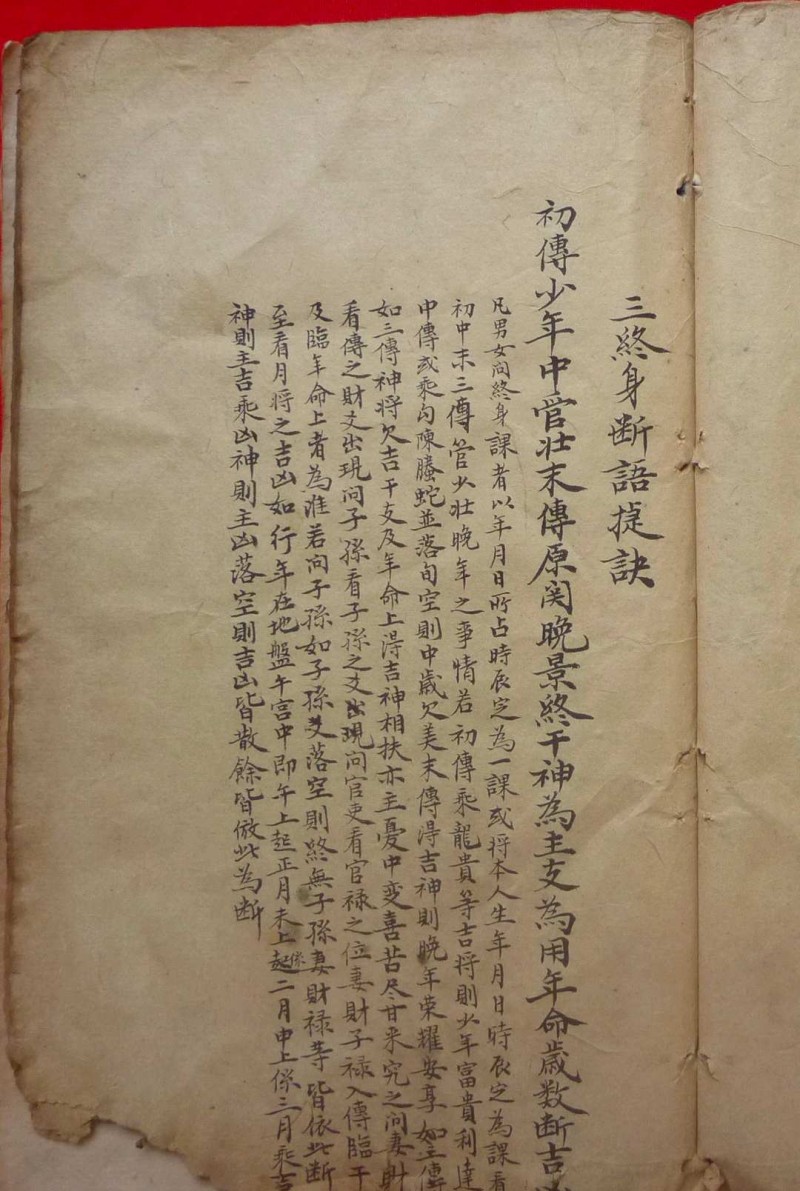 三終身断語捷訣
初傳少年中管壮末傳原関晩景終干神為主支為用年命歳数断吉凶
凡男女问終身課者以年月日所占時辰定為一課或将本人生年月日時辰定為課看
初中末三傳管少壮晩年之事情若初傳乘龍貴等吉将則少年富貴利達
中傳或乘勾陳螣蛇並落旬空則中歳欠美末傳得吉神則晩年荣耀安享如三傳
如三傳神将欠吉干支及年命上得吉神相扶亦主憂中变喜苦尽甘来究之问妻財
看傳之財爻出現问子孫看子孫之爻出現问官吏看官禄之位妻財子禄入傳臨干
及臨年命上者為准若问子孫如子孫爻落空則終無子孫妻財禄等皆依此断
至看月将之吉凶如行年在地盤午宫中即午上起正月未上起係二月申上係三月乘吉
神則主吉乘凶神則主凶落空則吉凶皆散餘皆倣此為断